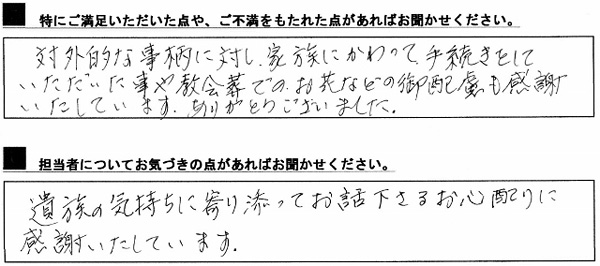 ■ 特にご満足いただいた点や、ご不満をもたれた点があればお聞かせください。
対外的な事柄に対し、家族にかわって、手続きをして
いただいた事や教会葬でのお花などの御配慮も感謝
いたしています。ありがとうございました。
■ 担当者についてお気づきの点があればお聞かせください。
遺族の気持ちに寄り添ってお話下さるお心配りに
感謝いたしています。